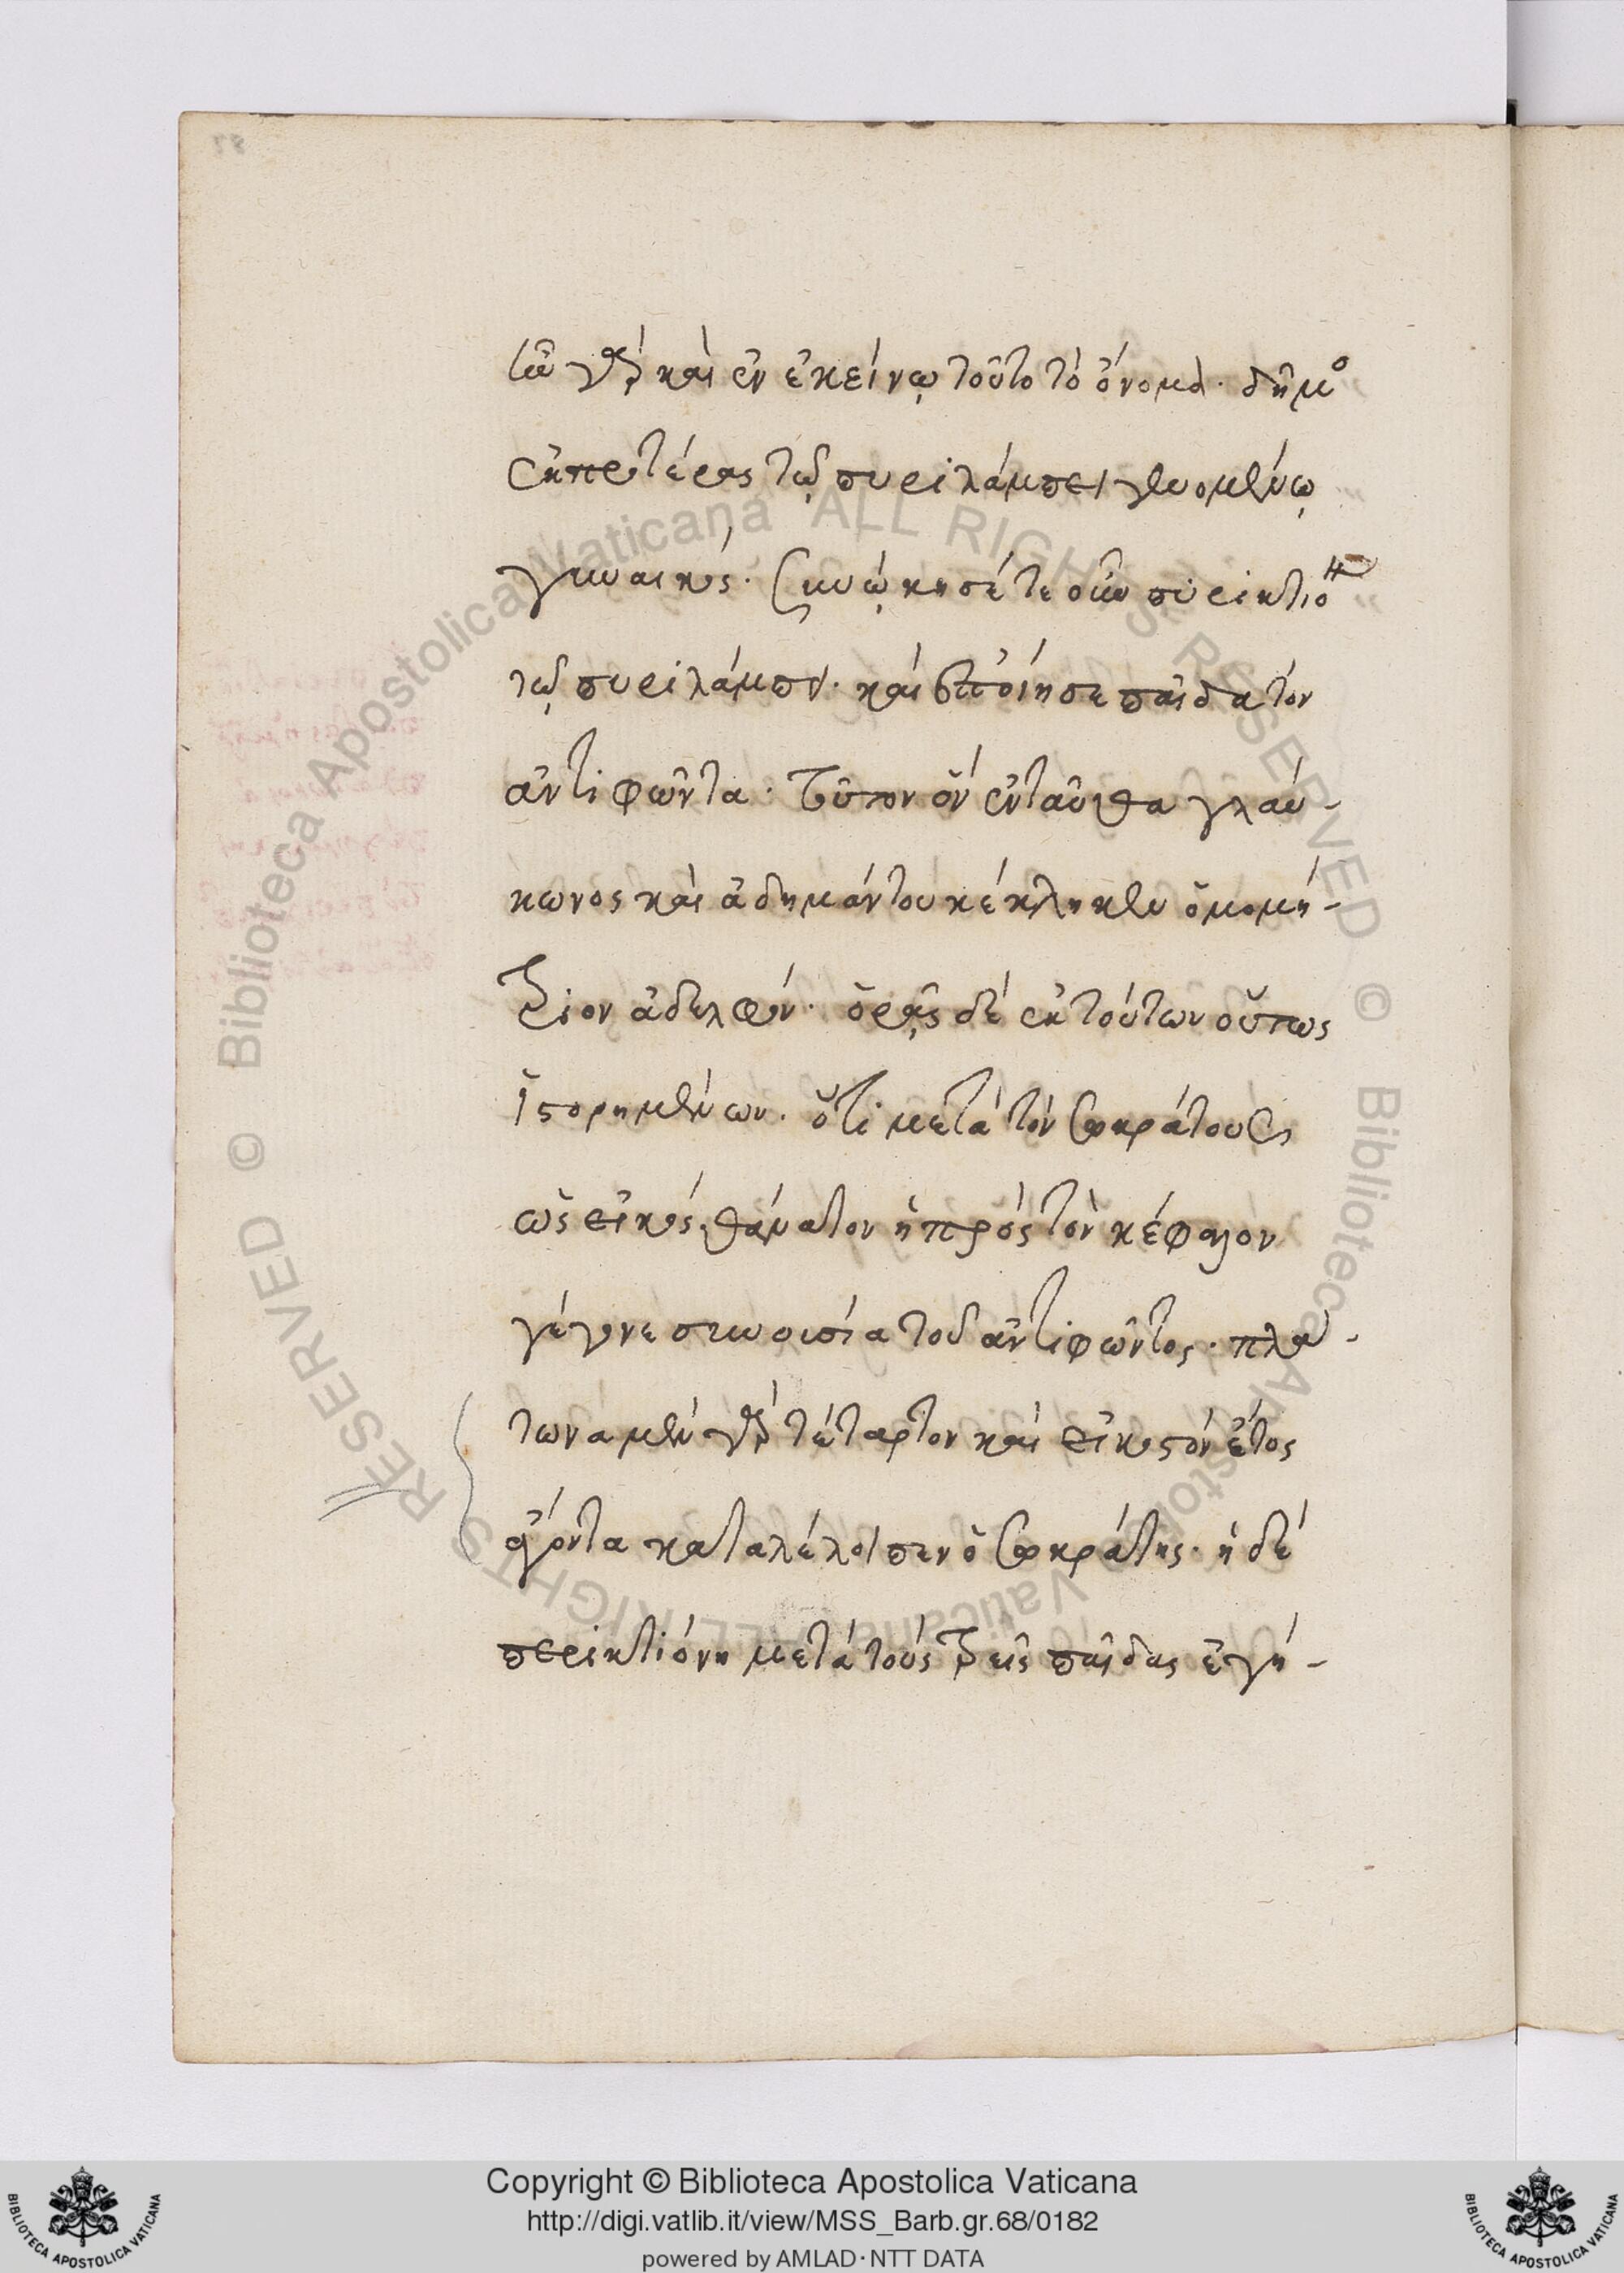 ἦν γὰρ καὶ ἐν ἐκείνῳ τοῦτο τὸ ὄνομα. δῆμο
ἐκ προτέρας τῷ πυριλάμπει γενομένῳ
γυναικός. συνῴκησέ τε οὖν περικτιόνη
τῷ πυριλάμπει. καὶ ἐποίησε παῖδα τὸν
ἀντιφῶντα. τοῦτον ὃν ἐνταῦθα γλαύ-
κωνος καὶ ἀδημάντου κέκληκεν ὁμομή-
τριον ἀδελφόν. ὁρᾷς δὲ ἐκ τούτων οὕτως
ἱστορημένων. ὅτι μετὰ τὸν σωκράτους
ὡς εἰκός, θάνατον ἡ πρὸς τὸν κέφαλον
γέγονε συνουσία τοῦ ἀντιφῶντος. πλά-
τωνα μὲν γὰρ τέταρτον καὶ εἰκοστὸν ἔτος
ἄγοντα καταλέλοιπεν ὁ σωκράτης. ἡ δὲ
περικτιόνη μετὰ τοὺς τρεῖς παῖδας ἐγή-
Copyright © Biblioteca Apostolica Vaticana
http://digi.vatlib.it/view/MSS_Barb.gr.68/0182
powered by AMLAD · NTT DATA
BIBLIOTECA APOSTOLICA VATICANA
BIBLIOTECA APOSTOLICA VATICANA
© Biblioteca Apostolica Vaticana ALL RIGHTS RESERVED
© Biblioteca Apostolica Vaticana ALL RIGHTS RESERVED